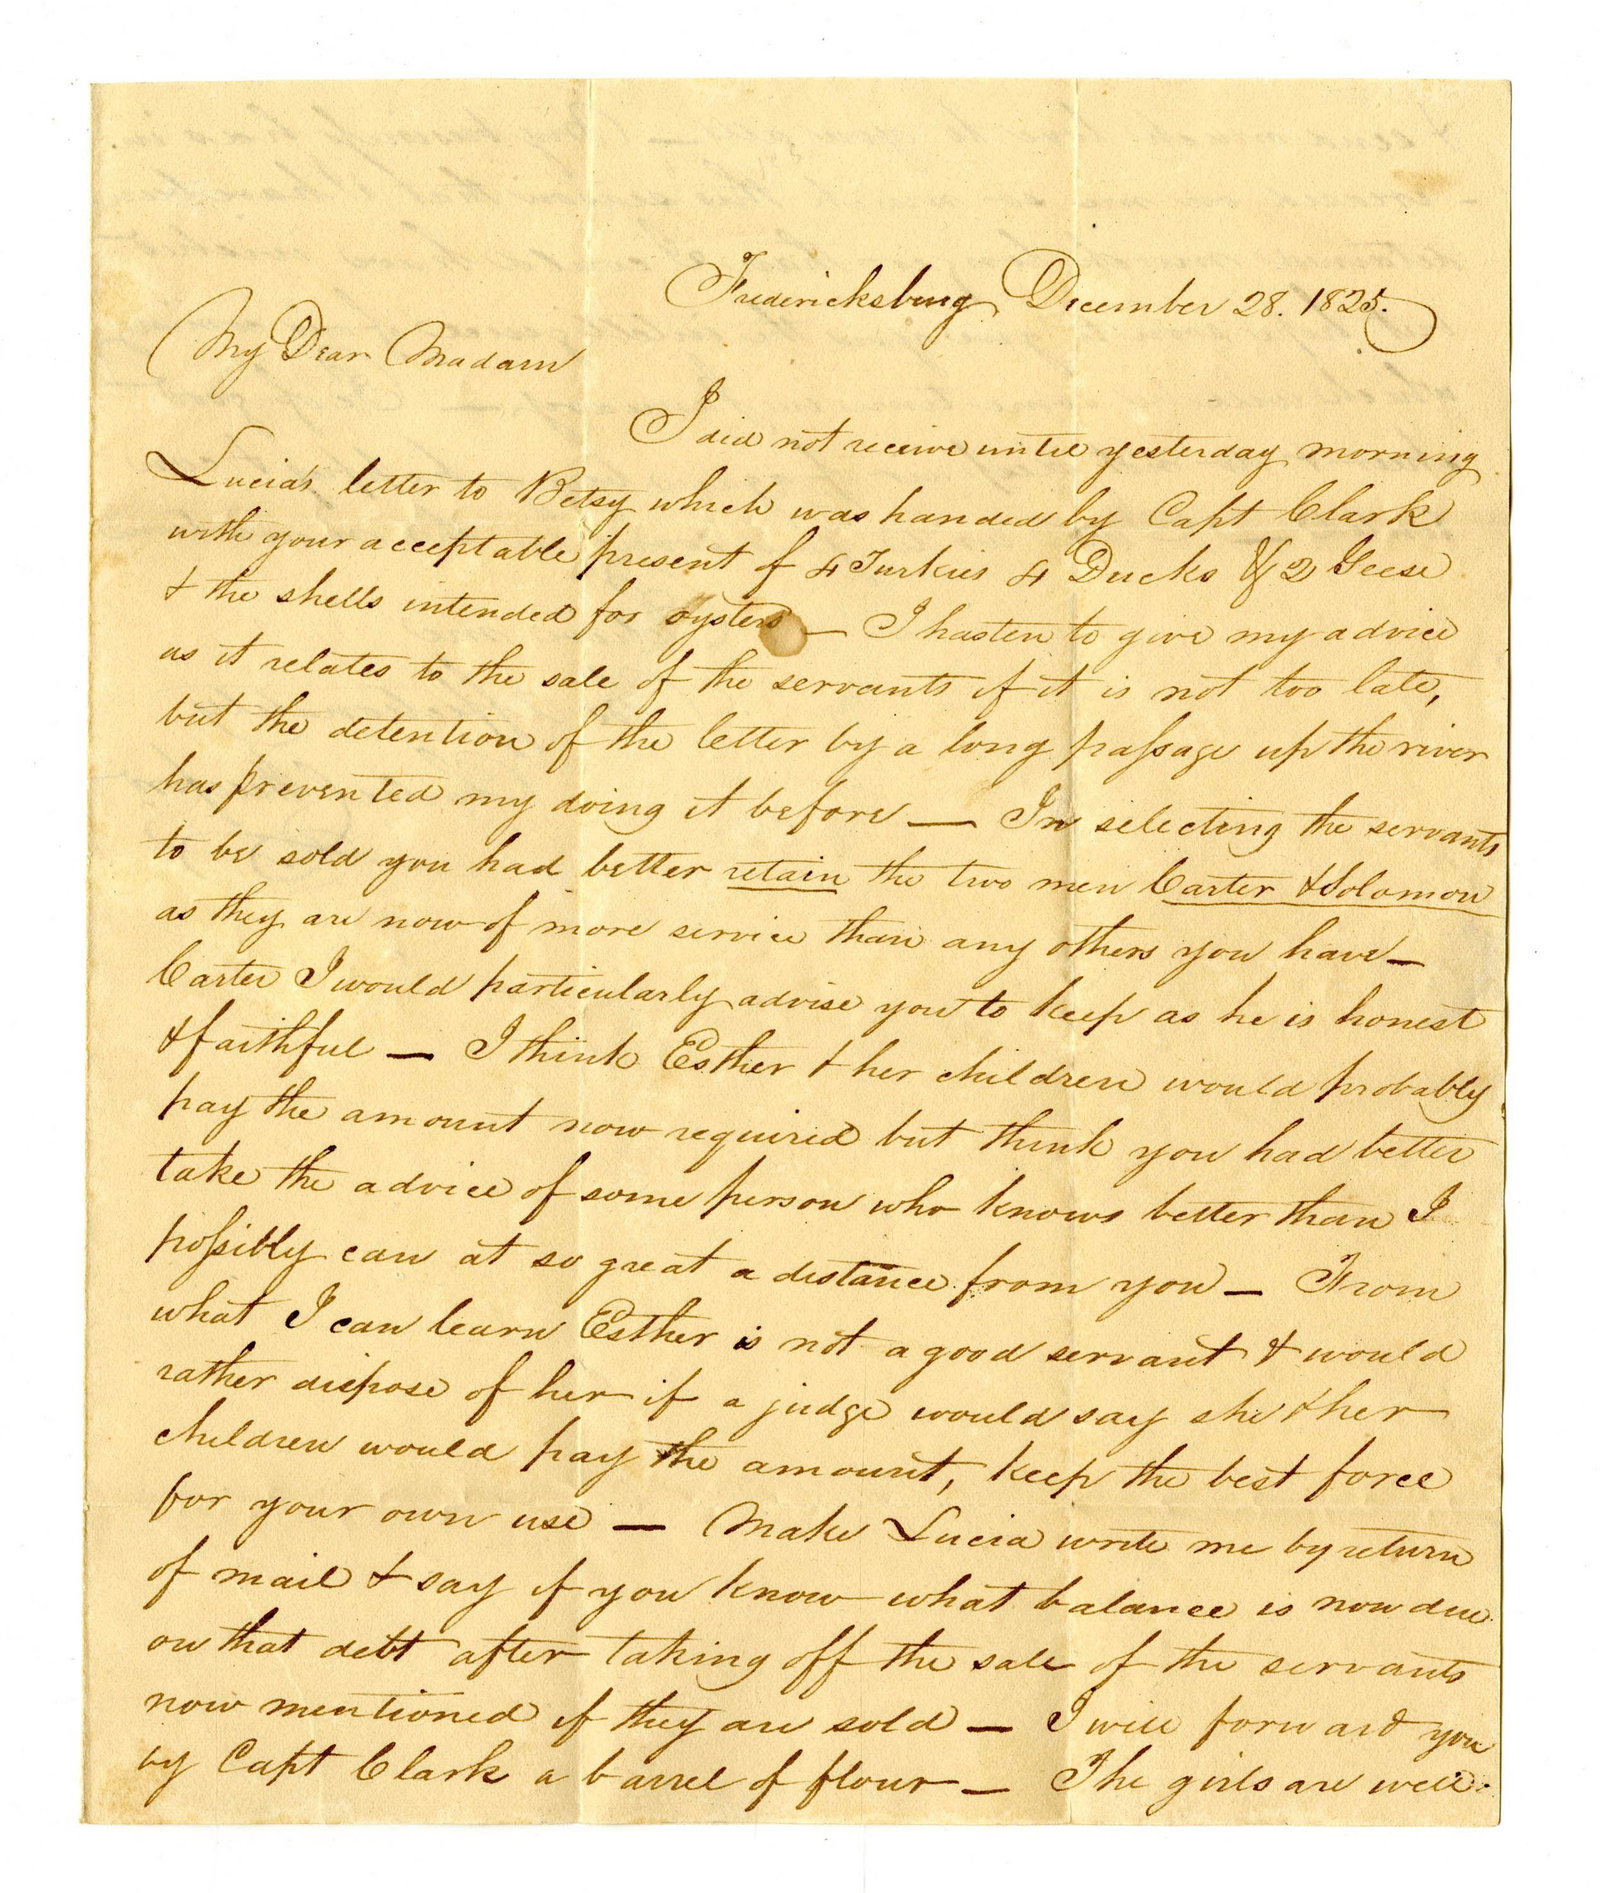 Fredericksburg December 28. 1825.
My Dear Madam
I did not receive until yesterday morning
Lucia's letter to Betsy which was handed by Capt Clark
with your acceptable present of 4 Turkies 4 Ducks & 2 Geese
& the shells intended for oysters — I hasten to give my advice
as it relates to the sale of the servants if it is not too late,
but the detention of the letter by a long passage up the river
has prevented my doing it before — In selecting the servants
to be sold you had better retain the two men Carter & Solomon
as they are now of more service than any others you have —
Carter I would particularly advise you to keep as he is honest
& faithful — I think Esther & her children would probably
pay the amount now required but think you had better
take the advice of some person who knows better than I
possibly can at so great a distance from you — From
what I can learn Esther is not a good servant & would
rather dispose of her if a judge would say she & her
children would pay the amount, keep the best force
for your own use — Make Lucia write me by return
of mail & say if you know what balance is now due
on that debt after taking off the sale of the servants
now mentioned if they are sold — I will forward you
by Capt Clark a barrel of flour — The girls are well.